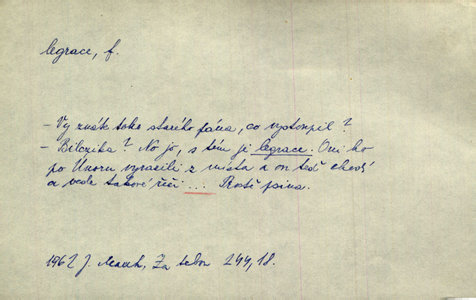 legrace, f.
- Vy znák toho starího pána, co vystoupil?
- Bělczika? No jó, s tím je legrace. Oni ho
po Únoru vyrazili z místa a on teď chodí
a vede takové řeči ... Prostě psina.
1962 J. Marek, Za tebou 244, 18.